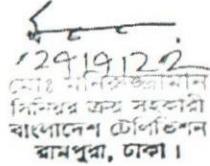 মোঃ মনিরুজ্জামান
সিনিয়র ক্রয় সহকারী
বাংলাদেশ টেলিভিশন
রামপুরা, ঢাকা।